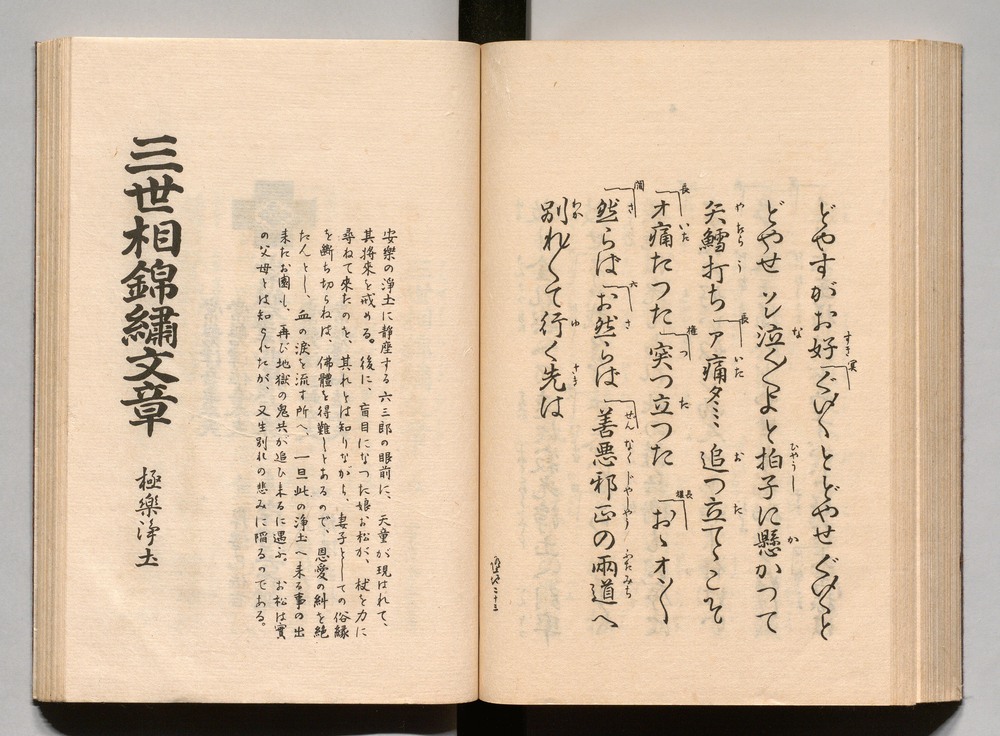 どやすがお好「ぐいくとどやせぐいくと
どやせ ソレ泣くくよと拍子に懸かつて
矢鱈打ち「ア痛タミミ追つ立てゝこそ
「オ痛たつた「突つ立つた「おゝオゝく
「然らば「お然らば「善悪邪正の両道へ
別れくて行く先は
三世相錦繡文章 極樂浄土
安樂の浄土に静座する六三郎の眼前に、天童が現はれて、
其将來を戒める。後に、盲目になつた娘お松が、杖を力に
尋ねて來たのを、其れとは知りながら、妻子としての俗縁
を断ち切らねば、佛體を得難しとあるので、恩愛の糾を絶
たんとし、血の涙を流す所へ、一旦此の浄土へ來る事の出
來たお園も、再び地獄の鬼共が追ひ來るに遇ふ。お松は實
の父母とは知られたが、又生別れの悲みに陥るのである。